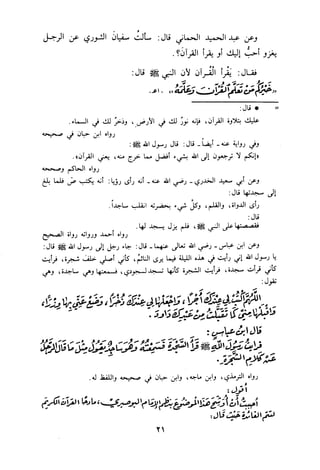 وعن عبد الحميد الحماني قال: سألت سفيان الثوري عن الرجل
يغزو أحب إليك أو يقرأ القرآن؟.
فقال: يقرأ القرآن لأن النبي ﷺ قال:
«خيركم من تعلم القرآن وعلمه» .اهـ.
* قال:
عليك بتلاوة القرآن، فإنه نور لك في الأرض، وذخر لك في السماء.
رواه ابن حبان في صحيحه
وفي رواية عنه - أيضاً - قال: قال رسول الله ﷺ:
«إنكم لا ترجعون إلى الله بشيء أفضل مما خرج منه، يعني القرآن».
رواه الحاكم وصححه
وعن أبي سعيد الخدري - رضي الله عنه - أنه رأى رؤيا: أنه يكتب ص فلما بلغ
إلى سجدتها قال:
رأى الدواة، والقلم، وكل شيء بحضرته انقلب ساجداً.
قال:
فقصصتها على النبي ﷺ، فلم يزل يسجد لها.
رواه أحمد ورواته رواة الصحيح
وعن ابن عباس - رضي الله تعالى عنهما - قال: جاء رجل إلى رسول الله ﷺ قال:
يا رسول الله إني رأيت في هذه الليلة فيما يرى النائم، كأني أصلي خلف شجرة، فرأيت
كأني قرأت سجدة، فرأيت الشجرة كأنها تسجد لسجودي، فسمعتها وهي ساجدة، وهي
تقول:
اللهم اكتب لي عندك أجرا، واجعلها لي عندك ذخرا، وضع عني بها وزرا،
واقبلها مني كما تقبلت من عبدك داود.
قال ابن عباس:
فرأيت رسول الله ﷺ قرأ السجدة فسمعته وهو ساجد يقول مثل ما قال الرجل
عن كلام الشجرة.
رواه الترمذي، وابن ماجه، وابن حبان في صحيحه واللفظ له.
أقول:
أحببت أن أوشح هذا الموضوع بنظم الإمام البوصيري، مادحا القرآن الكريم
لتتم الفائدة حيث قال:
٢١